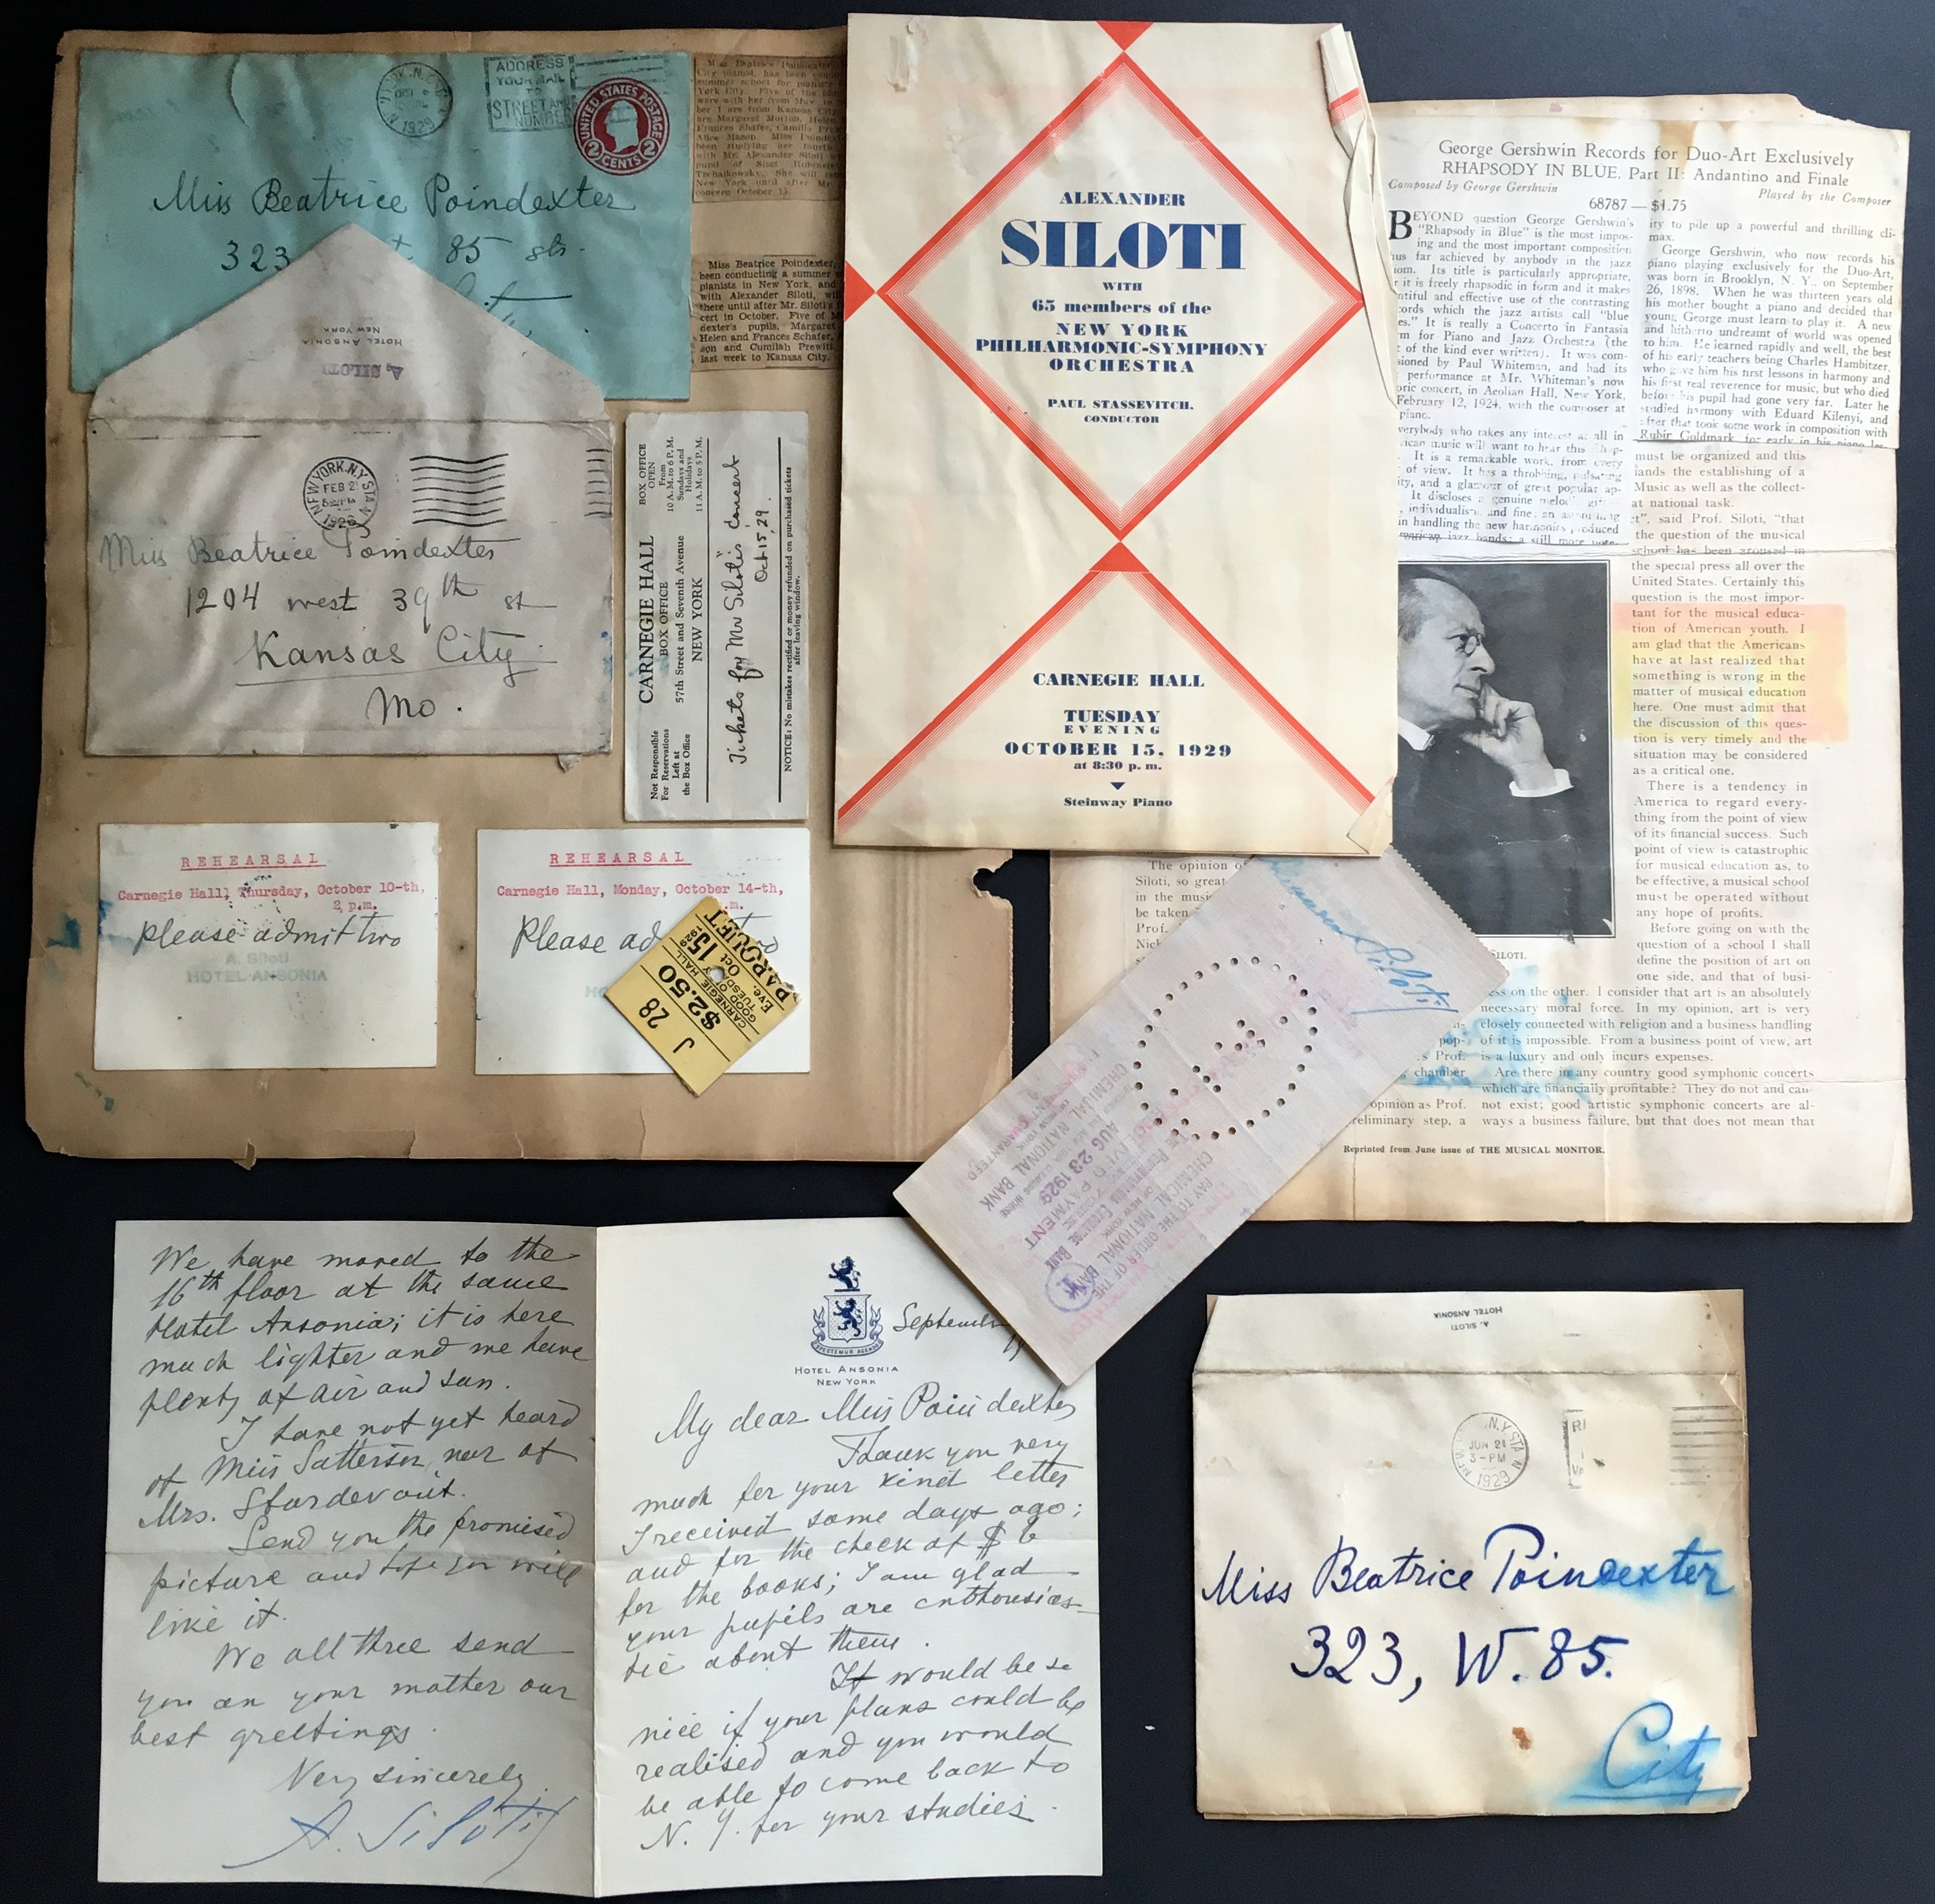 ADDRESS
YOUR MAIL
TO
STREET AND
NUMBER
1929
UNITED STATES POSTAGE
2 CENTS 2
Miss Beatrice Poindexter
323 85 str.
HOTEL ANSONIA
NEW YORK
A. SILOTI
NEW YORK, N.Y. STA. N
FEB 2
Miss Beatrice Poindexter
1204 west 39th st
Kansas City
Mo.
Miss Beatrice Poindexter
City pianist, has been
summer school for pianists
York City. Five of the
were with her from
ber 1 are from Kansas City
are Margaret Morton, Helen
Frances Shafer, Camilla
Alice Mason. Miss Poindexter
been studying her fourth
with Mr. Alexander Siloti
pupil of Liszt,
Tschaikowsky. She will
New York until after Mr.
concert October 15.
Miss Beatrice Poindexter,
been conducting a summer
pianists in New York, and
with Alexander Siloti, will
there until after Mr. Siloti's
cert in October. Five of M
dexter's pupils, Margaret
Helen and Frances Schafer,
son and Cumilah Prewitt,
last week to Kansas City.
BOX OFFICE
OPEN
From
10 A.M. to 6 P.M.
Sundays and
Holidays
11 A.M. to 5 P.M.
CARNEGIE HALL
BOX OFFICE
57th Street and Seventh Avenue
NEW YORK
Not Responsible
For Reservations
Left at
the Box Office
Tickets for Mr Siloti's Concert
Oct 15, 29.
NOTICE: No mistakes rectified or money refunded on purchased tickets
after leaving window.
REHEARSAL
Carnegie Hall, Thursday, October 10-th,
2 p.m.
Please admit two
A. Siloti
HOTEL ANSONIA
REHEARSAL
Carnegie Hall, Monday, October 14-th,
.m.
Please ad
J 28
$2.50
CARNEGIE HALL
GOOD ONLY
TUESDAY
Eve. Oct 15 1929
PARQUET
ALEXANDER
SILOTI
WITH
65 members of the
NEW YORK
PHILHARMONIC-SYMPHONY
ORCHESTRA
PAUL STASSEVITCH,
CONDUCTOR
CARNEGIE HALL
TUESDAY
EVENING
OCTOBER 15, 1929
at 8:30 p. m.
Steinway Piano
George Gershwin Records for Duo-Art Exclusively
RHAPSODY IN BLUE, Part II: Andantino and Finale
Composed by George Gershwin
Played by the Composer
68787 — $1.75
BEYOND question George Gershwin's
"Rhapsody in Blue" is the most impos-
ing and the most important composition
us far achieved by anybody in the jazz
iom. Its title is particularly appropriate,
r it is freely rhapsodic in form and it makes
ntiful and effective use of the contrasting
cords which the jazz artists call "blue
es." It is really a Concerto in Fantasia
rm for Piano and Jazz Orchestra (the
t of the kind ever written). It was com-
sioned by Paul Whiteman, and had its
performance at Mr. Whiteman's now
oric concert, in Aeolian Hall, New York,
February 12, 1924, with the composer at
piano.
verybody who takes any interest at all in
ican music will want to hear this
It is a remarkable work, from every
of view. It has a throbbing, pulsating
ity, and a glamour of great popular ap-
It discloses a genuine
individualism and fine
in handling the new harmonics produced
American jazz bands; a still more
ity to pile up a powerful and thrilling cli-
max.
George Gershwin, who now records his
piano playing exclusively for the Duo-Art,
was born in Brooklyn, N. Y., on September
26, 1898. When he was thirteen years old
his mother bought a piano and decided that
young George must learn to play it. A new
and hitherto undreamt of world was opened
to him. He learned rapidly and well, the best
of his early teachers being Charles Hambitzer,
who gave him his first lessons in harmony and
his first real reverence for music, but who died
before his pupil had gone very far. Later he
studied harmony with Eduard Kilenyi, and
after that took some work in composition with
Rubin Goldmark, for early in his piano les-
must be organized and this
lands the establishing of a
Music as well as the collect-
at national task.
t", said Prof. Siloti, "that
the question of the musical
school has been aroused in
the special press all over the
United States. Certainly this
question is the most impor-
tant for the musical educa-
tion of American youth. I
am glad that the Americans
have at last realized that
something is wrong in the
matter of musical education
here. One must admit that
the discussion of this ques-
tion is very timely and the
situation may be considered
as a critical one.
There is a tendency in
America to regard every-
thing from the point of view
of its financial success. Such
point of view is catastrophic
for musical education as, to
be effective, a musical school
must be operated without
any hope of profits.
Before going on with the
question of a school I shall
define the position of art on
one side, and that of busi-
ess on the other. I consider that art is an absolutely
necessary moral force. In my opinion, art is very
closely connected with religion and a business handling
of it is impossible. From a business point of view, art
is a luxury and only incurs expenses.
Are there in any country good symphonic concerts
which are financially profitable? They do not and can-
not exist; good artistic symphonic concerts are al-
ways a business failure, but that does not mean that
SILOTI.
The opinion of
Siloti, so great
in the musi
be taken
Prof.
Nich
pop-
s Prof.
chamber
opinion as Prof.
reliminary step, a
Reprinted from June issue of THE MUSICAL MONITOR.
Siloti
PAY TO THE ORDER OF THE
CHEMICAL NATIONAL BANK
OF NEW YORK
RECEIVED PAYMENT
AUG 23 1929
CHEMICAL NATIONAL BANK
We have moved to the
16th floor at the same
Hotel Ansonia; it is here
much lighter and we have
plenty of air and sun.
I have not yet heard
of Miss Satterson, nor of
Mrs. Sturdevant.
Send you the promised
picture and hope you will
like it.
We all three send
you an your mother our
best greetings.
Very sincerely
A. Siloti
HOTEL ANSONIA
NEW YORK
September
My dear Miss Poindexter
Thank you very
much for your kind letter
I received some days ago;
and for the check of $ 6
for the books; I am glad
your pupils are enthousias-
tic about them.
It would be so
nice if your plans could be
realised and you would
be able to come back to
N. Y. for your studies.
A. SILOTI
HOTEL ANSONIA
NEW N.Y. STA N
JUN 21
3-PM
1929
Miss Beatrice Poindexter
323, W. 85.
City